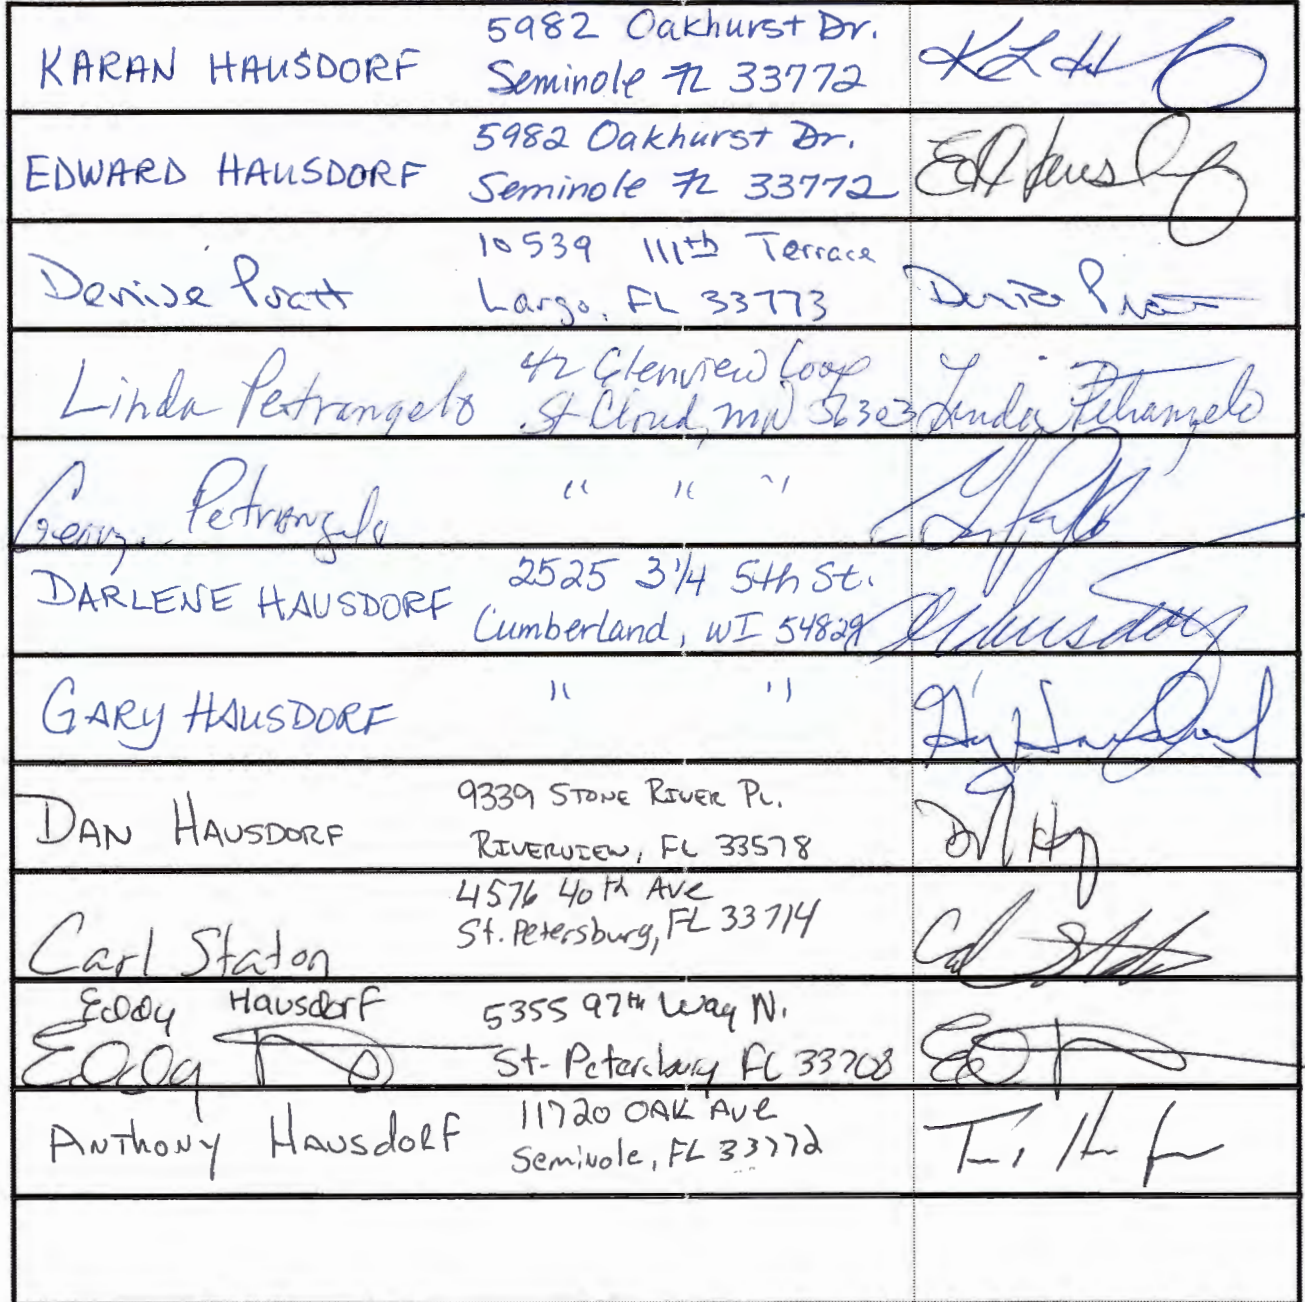 KARAN HAUSDORF
5982 Oakhurst Dr.
Seminole FL 33772
EDWARD HAUSDORF
5982 Oakhurst Dr.
Seminole FL 33772
Ed Hausdorf
Denise Pratt
10539 111th Terrace
Largo, FL 33773
Denise Pratt
Linda Petrangelo
42 Glenview Loop
St Cloud, MN 56303
Linda Petrangelo
George Petrangelo
" " "
DARLENE HAUSDORF
2525 3 1/4 5th St.
Cumberland, WI 54829
GARY HAUSDORF
" "
DAN HAUSDORF
9339 STONE RIVER PL.
RIVERVIEW, FL 33578
Carl Staton
4576 40th Ave
St. Petersburg, FL 33714
Eddy Hausdorf
Eddy
5355 97th Way N.
St. Petersburg FL 33708
ANTHONY HAUSDORF
11720 OAK Ave
Seminole, FL 33772